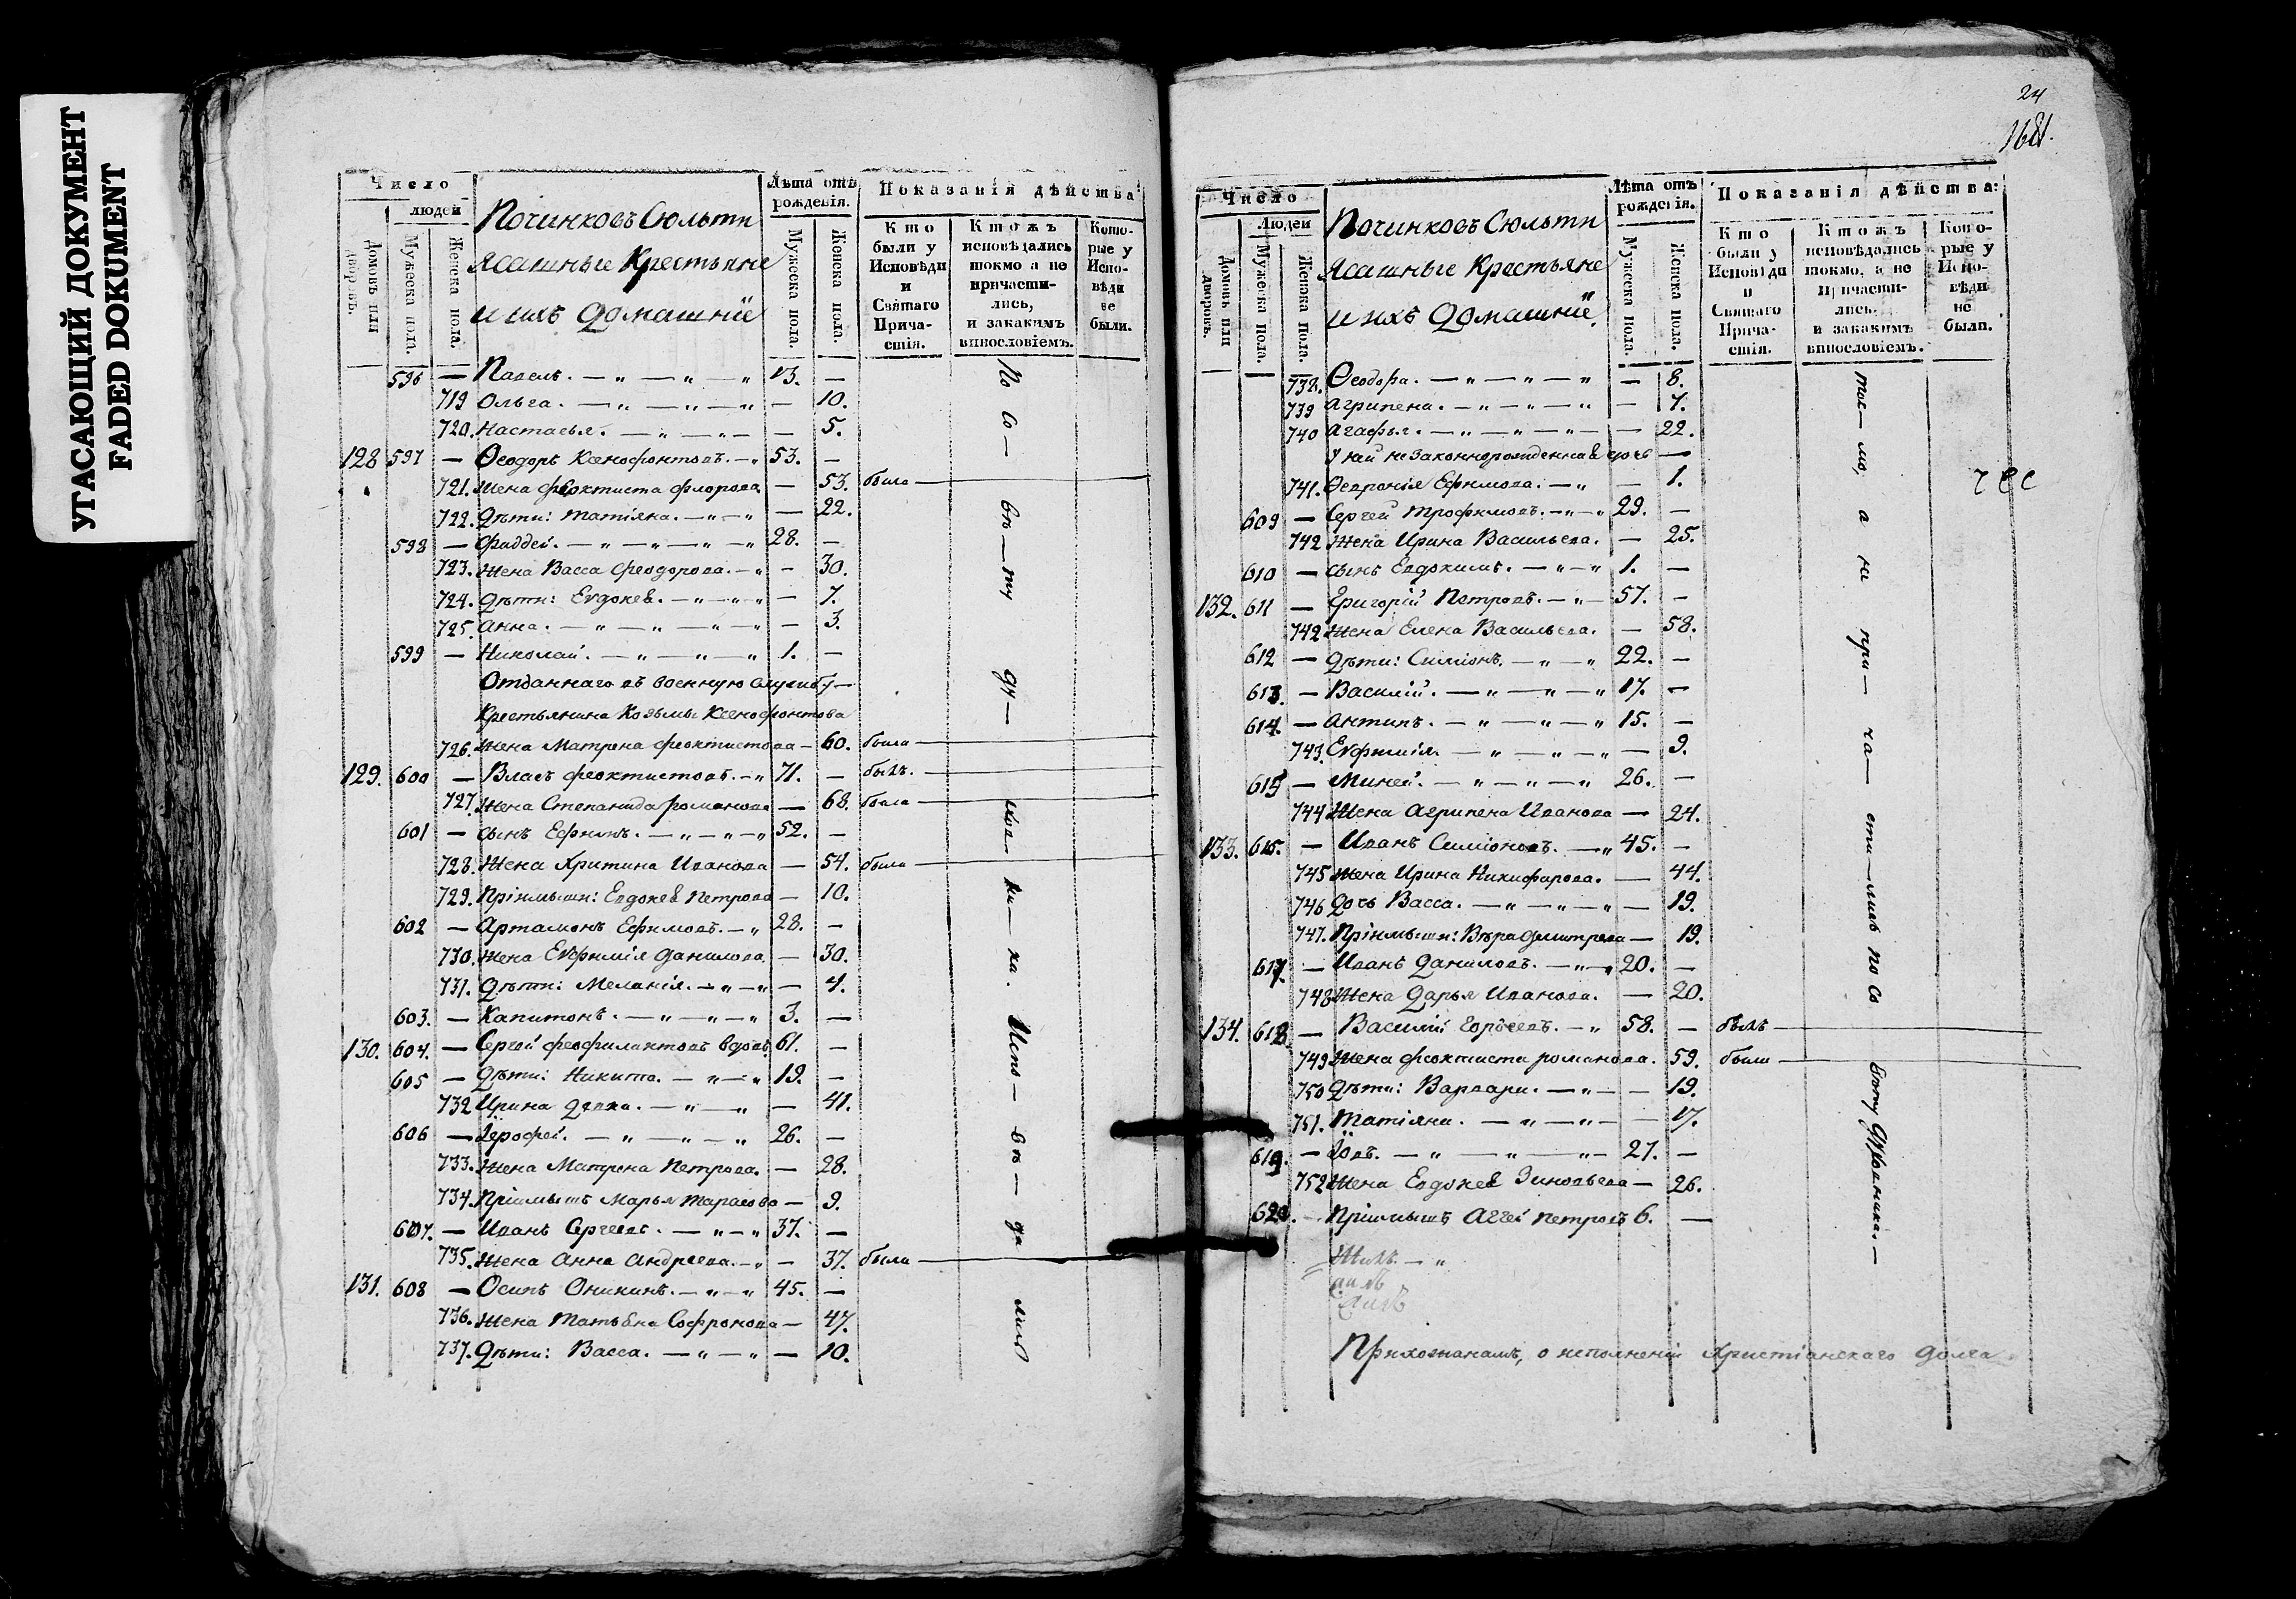 УГАСАЮЩИЙ ДОКУМЕНТ
FADED DOKUMENT
Число
людей
Домовъ или дворовъ.
Мужеска пола.
Женска пола.
Починковъ Сюльти
Ясашные Крестьяне
и ихъ Домашнїе
Лѣта отъ рожденія.
Мужеска пола.
Женска пола.
Показанія дѣйства:
Кто были у Исповѣди и Святаго Причастія.
Ктожъ исповѣдались токмо а не причастились, и закакимъ винословіемъ.
Которые у Исповѣди не были.
596 — Павелъ. — „ — „ — „ 13. —
719 Ольга. — „ — „ — „ — 10.
720. Настасья. — „ — „ — — 5.
128 597 — Ѳеодоръ Ксенофонтовъ. — „ 53. —
721. Жена Феоктиста Флорова — 53. была —
722. Дѣти: Татіяна. — „ — „ — 22.
598 — Фаддей. — „ — „ — „ — „ 28. —
723. Жена Васса Феодорова. — „ — 30.
724. Дѣти: Евдокея. — „ — „ — „ — 7.
725. Анна. — „ — „ — „ — „ — 3.
599 — Николай. — „ — „ — „ 1. —
Отданнаго въ военную службу —
Крестьянина Козьмы Ксенофонтова
726. Жена Матрена Феоктистова — 60. была —
129. 600 — Власъ Феоктистовъ. — „ 71. — былъ. —
727. Жена Степанида Романова — 68. была —
601 — сынъ Ефимъ. — „ — „ — „ 52. —
728. Жена Христина Иванова — 54. была —
729. Пріимыши: Евдокея Петрова — 10.
602 — Артамонъ Ефимовъ. — „ 28. —
730. Жена Евфимія Данилова. — 30.
731. Дѣти: Меланія. — „ — „ — 4.
603. — Капитонъ. — „ — „ — „ 3. —
130. 604. — Сергей Феофилактовъ вдовъ. 61. —
605 — Дѣти: Никита. — „ — „ 19. —
732 Ирина Девка. — „ — „ — 41.
606 — Іерофей. — „ — „ — „ 26. —
733. Жена Матрена Петрова. — 28.
734. Пріимышъ Марья Тарасова — 9.
607. — Иванъ Сергеевъ. — „ — „ 37. —
735. Жена Анна Андреева. — „ — 37. была —
131. 608 — Осипъ Оникинъ. — „ — „ 45. —
736. Жена Татьяна Софронова — 47.
737. Дѣти: Васса. — „ — „ — 10.
По со — вѣ — ту ду — хов — ни — ка. Испо — вѣ — да лись
24
Число
Людей
Домовъ или дворовъ.
Мужеска пола.
Женска пола.
Починковъ Сюльти
Ясашные Крестьяне
и ихъ Домашнїе
Лѣта отъ рожденія.
Мужеска пола.
Женска пола.
Показанія дѣйства:
Кто были у Исповѣди и Святаго Причастія.
Ктожъ исповѣдались токмо, а не Причастились, и закакимъ винословіемъ.
Которые у Исповѣди не были.
738. Ѳеодора. — „ — „ — „ — 8.
739 Агрипена. — „ — „ — „ — 7.
740 Агафья. — „ — „ — „ — — 22.
У ней незаконнорожденная дочь —
741. Ѳевронія Ефимова. — „ — 1.
609 — Сергей Трофимовъ. — „ — „ 29. —
742 Жена Ирина Васильева. — 25.
610 — сынъ Евдокимъ. — „ — „ 1. —
132. 611 — Григорій Петровъ. — „ — 57. —
742 Жена Елена Васильева. — 58.
612 — Дѣти: Симіонъ. — „ — „ 22. —
613. — Василій. — „ — „ — „ 17. —
614. — Антипъ. — „ — „ — „ 15. —
743. Евфимія. — „ — „ — „ — 9.
615 — Миней. — „ — „ — „ 26. —
744 Жена Агрипена Иванова — 24.
133. 616. — Иванъ Симіоновъ. — „ 45. —
745 Жена Ирина Никифорова. — 44.
746 Дочь Васса. — „ — „ — „ — 19.
747. Пріимыши: Вѣра Димитрева — 19.
617. — Иванъ Даниловъ. — „ — „ 20. —
748 Жена Дарья Иванова. — 20.
134. 618. — Василій — „ 58. — былъ —
749 Жена Феоктиста Романова. 59. была —
750 Дѣти: Варвара. — „ — — 19.
751. Татіяна. — „ — „ — — 17.
619. — Іовъ. — „ — „ — „ — 27. —
752 Жена Евдокея Зиновьева — 26.
620. — Пріимышъ Аггей Петровъ 6. —
ток — мо, а не при — ча — сти — лись по со вѣту Духовника. —
Прихожанамъ, о исполненіи Христіанскаго долга